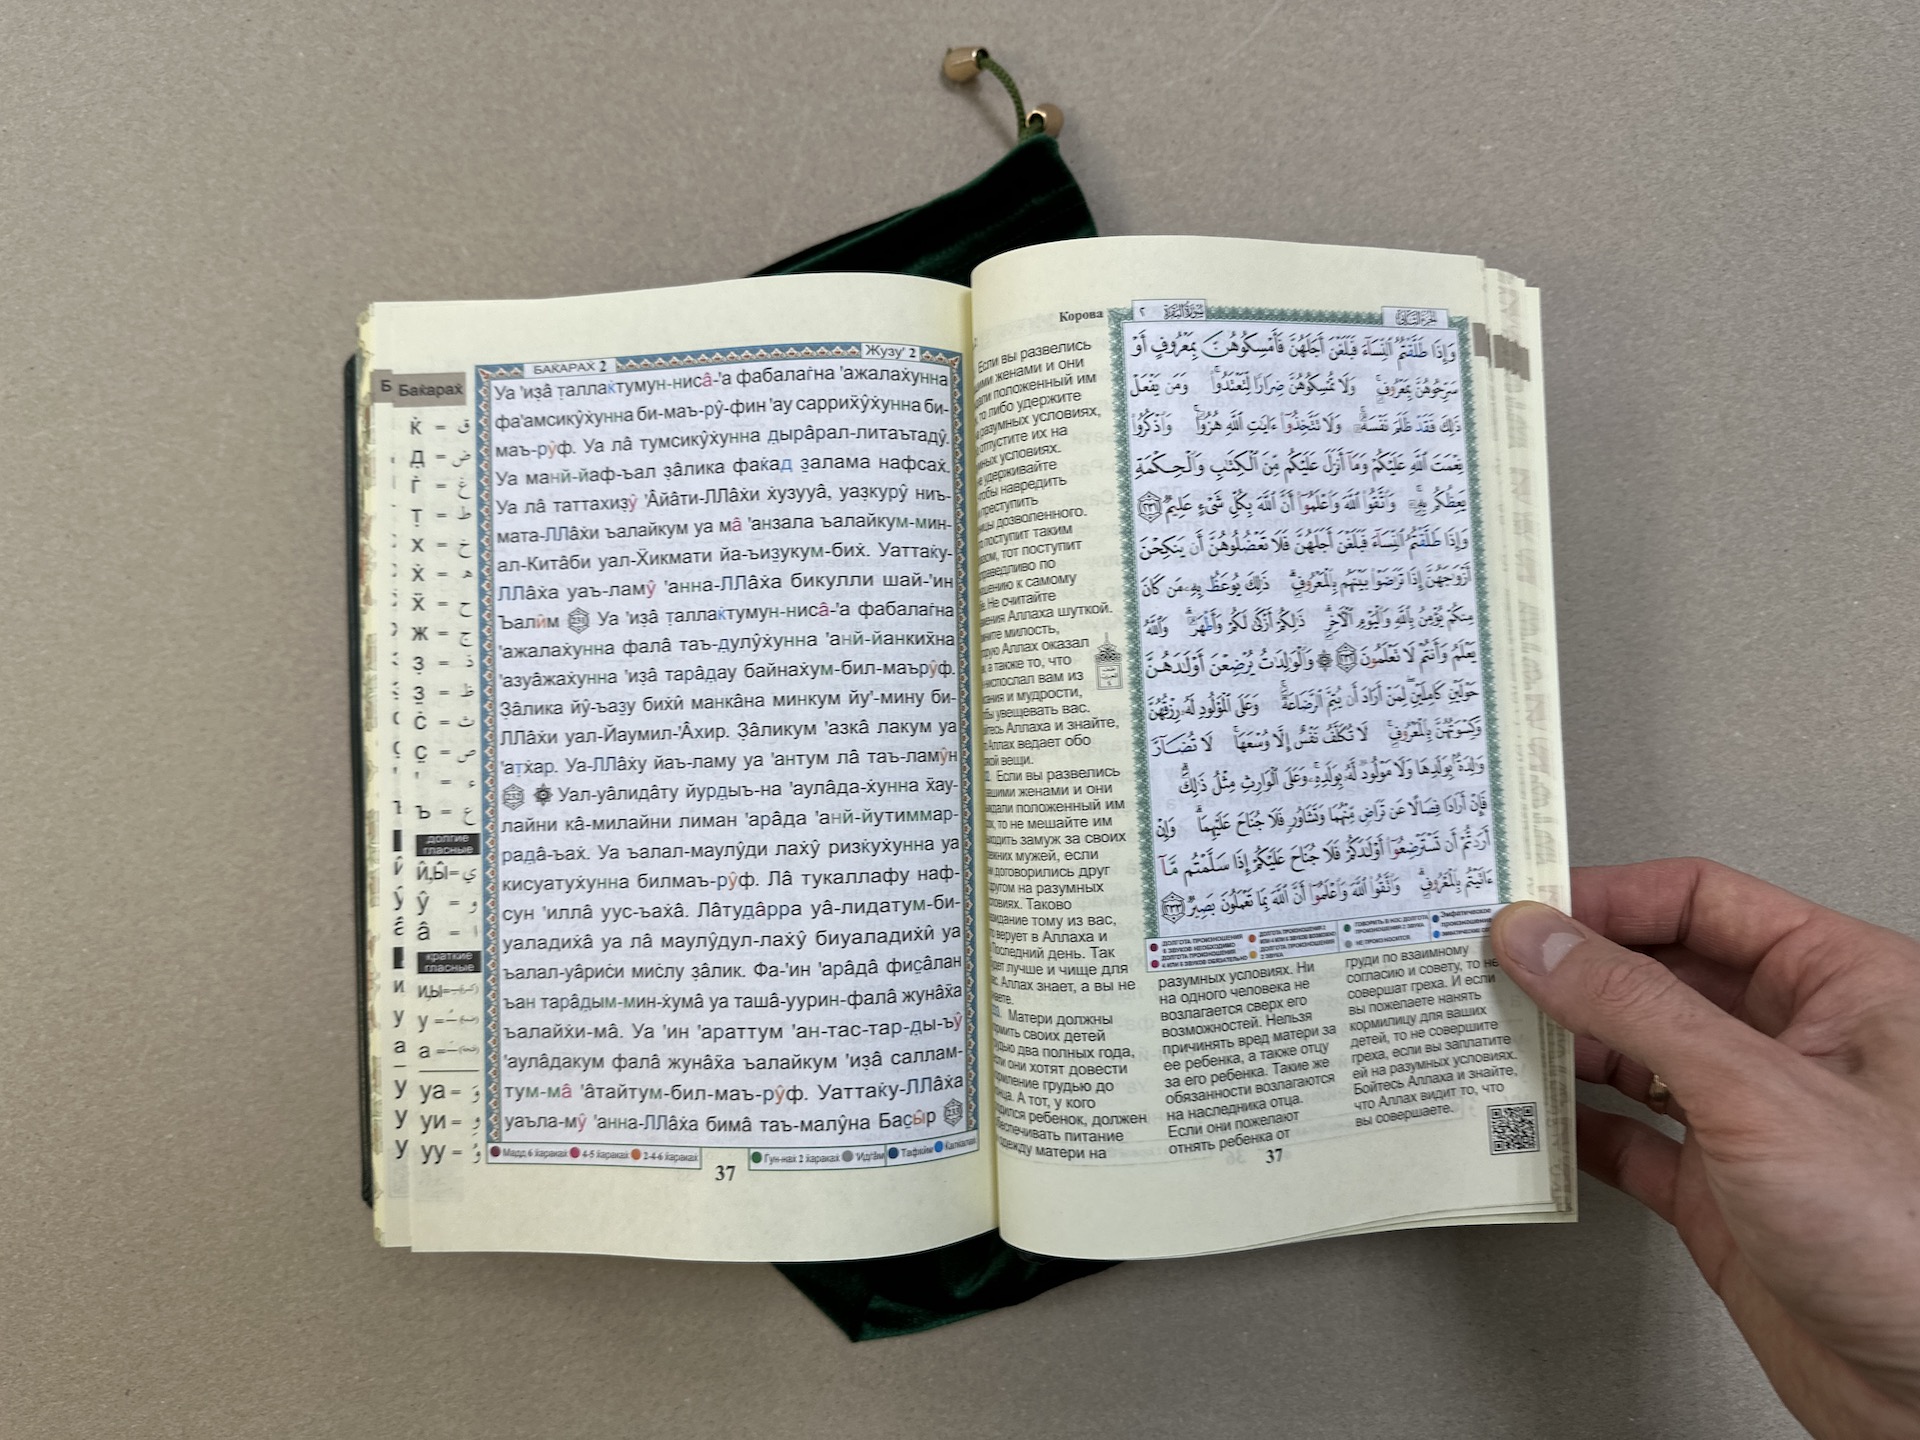 БАКАРАХ 2
Жузу' 2
Уа 'иẓâ т̣аллак̇тумун-нисâ-'а фабалаг̇на 'ажалах̇унна
фа'амсикŷх̇унна би-маъ-рŷ-фин 'ау саррих̃ŷх̇унна би-
маъ-рŷф. Уа лâ тумсикŷх̇унна д̣ырâрал-литаътадŷ.
Уа манй-йаф-ъал з̣âлика фак̇ад з̣алама нафсах̇.
Уа лâ таттахиз̣ŷ 'Âйâти-ЛЛâх̇и х̇узууâ, уаз̣курŷ ниъ-
мата-ЛЛâх̇и ъалайкум уа мâ 'анзала ъалайкум-мин-
ал-Китâби уал-Х̃икмати йа-ъиз̣укум-бих̇. Уаттак̇у-
ЛЛâх̇а уаъ-ламŷ 'анна-ЛЛâх̇а бикулли шай-'ин
Ъалӣм 231 Уа 'из̣â т̣аллак̇тумун-нисâ-'а фабалаг̇на
'ажалах̇унна фалâ таъ-дулŷх̇унна 'анй-йанких̃на
'азуâжах̇унна 'из̣â тарâд̣ау байнах̇ум-бил-маърŷф.
З̣âлика йŷ-ъаз̣у бих̇й̂ манкâна минкум йу'-мину би-
ЛЛâх̇и уал-Йаумил-'Âхир. З̣âликум 'азкâ лакум уа
'ат̣х̇ар. Уа-ЛЛâх̇у йаъ-ламу уа 'антум лâ таъ-ламŷн
232 Уал-уâлидâту йурд̣ыъ-на 'аулâда-х̇унна х̃ау-
лайни кâ-милайни лиман 'арâда 'анй-йутиммар-
рад̣â-ъах̇. Уа ъалал-маулŷди лах̇ŷ ризк̇ух̇унна уа
кисуатух̇унна билмаъ-рŷф. Лâ тукаллафу наф-
сун 'иллâ уус-ъах̇â. Лâтуд̣âрра уâ-лидатум-би-
уаладих̇â уа лâ маулŷдул-лах̇ŷ биуаладих̇й̂ уа
ъалал-уâрис̇и мис̇лу з̣âлик. Фа-'ин 'арâдâ фис̣âлан
ъан тарâд̣ым-мин-х̇умâ уа ташâ-уурин-фалâ жунâх̃а
ъалайх̇и-мâ. Уа 'ин 'араттум 'ан-тас-тар-д̣ы-ъŷ
'аулâдакум фалâ жунâх̃а ъалайкум 'из̣â саллам-
тум-мâ 'âтайтум-бил-маъ-рŷф. Уаттак̇у-ЛЛâх̇а
уаъла-мŷ 'анна-ЛЛâх̇а бимâ таъ-малŷна Бас̣ы̂р 233
Мадд 6 х̃араках̇ 4-5 х̃араках̇ 2-4-6 х̃араках̇
Гун-нах̇ 2 х̃араках̇ 'Идг̇âм Тафхӣм Калкалах̇
37
Б Бак̇арах̇
К̇ = ق
Д̣ = ض
Г̇ = غ
Т̣ = ط
Х = خ
Х̇ = ه
Х̃ = ح
Ж = ج
З̣ = ذ
З̱ = ظ
С̇ = ث
С̣ = ص
' = ء
Ъ = ع
долгие
гласные
й̂,Ы̂=ي
ŷ = و
â = ا
краткие
гласные
и,ы=
у =
а =
уа = وَ
уи = وِ
уу = وُ
Корова
٢
سورة البقرة
الجزء الثاني
وَإِذَا طَلَّقْتُمُ النِّسَآءَ فَبَلَغْنَ أَجَلَهُنَّ فَأَمْسِكُوهُنَّ بِمَعْرُوفٍ أَوْ
سَرِّحُوهُنَّ بِمَعْرُوفٍ وَلَا تُمْسِكُوهُنَّ ضِرَارًا لِّتَعْتَدُوا۟ وَمَن يَفْعَلْ
ذَٰلِكَ فَقَدْ ظَلَمَ نَفْسَهُۥ وَلَا تَتَّخِذُوٓا۟ ءَايَٰتِ اللَّهِ هُزُوًا وَاذْكُرُوا۟
نِعْمَتَ اللَّهِ عَلَيْكُمْ وَمَآ أَنزَلَ عَلَيْكُم مِّنَ الْكِتَٰبِ وَالْحِكْمَةِ
يَعِظُكُم بِهِۦ وَاتَّقُوا۟ اللَّهَ وَاعْلَمُوٓا۟ أَنَّ اللَّهَ بِكُلِّ شَىْءٍ عَلِيمٌ ٢٣١
وَإِذَا طَلَّقْتُمُ النِّسَآءَ فَبَلَغْنَ أَجَلَهُنَّ فَلَا تَعْضُلُوهُنَّ أَن يَنكِحْنَ
أَزْوَٰجَهُنَّ إِذَا تَرَٰضَوْا۟ بَيْنَهُم بِالْمَعْرُوفِ ذَٰلِكَ يُوعَظُ بِهِۦ مَن كَانَ
مِنكُمْ يُؤْمِنُ بِاللَّهِ وَالْيَوْمِ الْـَٔاخِرِ ذَٰلِكُمْ أَزْكَىٰ لَكُمْ وَأَطْهَرُ وَاللَّهُ
يَعْلَمُ وَأَنتُمْ لَا تَعْلَمُونَ ٢٣٢ ۞ وَالْوَٰلِدَٰتُ يُرْضِعْنَ أَوْلَٰدَهُنَّ
حَوْلَيْنِ كَامِلَيْنِ لِمَنْ أَرَادَ أَن يُتِمَّ الرَّضَاعَةَ وَعَلَى الْمَوْلُودِ لَهُۥ رِزْقُهُنَّ
وَكِسْوَتُهُنَّ بِالْمَعْرُوفِ لَا تُكَلَّفُ نَفْسٌ إِلَّا وُسْعَهَا لَا تُضَآرَّ
وَٰلِدَةٌۢ بِوَلَدِهَا وَلَا مَوْلُودٌ لَّهُۥ بِوَلَدِهِۦ وَعَلَى الْوَارِثِ مِثْلُ ذَٰلِكَ
فَإِنْ أَرَادَا فِصَالًا عَن تَرَاضٍ مِّنْهُمَا وَتَشَاوُرٍ فَلَا جُنَاحَ عَلَيْهِمَا وَإِنْ
أَرَدتُّمْ أَن تَسْتَرْضِعُوٓا۟ أَوْلَٰدَكُمْ فَلَا جُنَاحَ عَلَيْكُمْ إِذَا سَلَّمْتُم مَّآ
ءَاتَيْتُم بِالْمَعْرُوفِ وَاتَّقُوا۟ اللَّهَ وَاعْلَمُوٓا۟ أَنَّ اللَّهَ بِمَا تَعْمَلُونَ بَصِيرٌ ٢٣٣
Если вы развелись
женами и они
положенный им
то либо удержите
разумных условиях,
отпустите их на
условиях.
удерживайте
чтобы навредить
преступить
дозволенного.
поступит таким
тот поступит
по
к самому
Не считайте
Аллаха шуткой.
милость,
Аллах оказал
а также то, что
ниспослал вам из
и мудрости,
увещевать вас.
Аллаха и знайте,
Аллах ведает обо
вещи.
Если вы развелись
женами и они
положенный им
то не мешайте им
замуж за своих
мужей, если
договорились друг
на разумных
Таково
тому из вас,
верует в Аллаха и
Последний день. Так
лучше и чище для
Аллах знает, а вы не
Матери должны
своих детей
два полных года,
они хотят довести
грудью до
А тот, у кого
ребенок, должен
питание
одежду матери на
ДОЛГОТА ПРОИЗНОШЕНИЯ
6 ЗВУКОВ НЕОБХОДИМО
ДОЛГОТА ПРОИЗНОШЕНИЯ
4 ИЛИ 5 ЗВУКОВ ОБЯЗАТЕЛЬНО
ДОЛГОТА ПРОИЗНОШЕНИЯ 2
ИЛИ 4 ИЛИ 6 ЗВУКОВ ВОЗМОЖНО
ДОЛГОТА ПРОИЗНОШЕНИЯ
2 ЗВУКА
ГОВОРИТЬ В НОС ДОЛГОТА
ПРОИЗНОШЕНИЯ 2 ЗВУКА
НЕ ПРОИЗНОСИТСЯ
Эмфатическое
произношение
разумных условиях. Ни
на одного человека не
возлагается сверх его
возможностей. Нельзя
причинять вред матери за
ее ребенка, а также отцу
за его ребенка. Такие же
обязанности возлагаются
на наследника отца.
Если они пожелают
отнять ребенка от
груди по взаимному
согласию и совету, то не
совершат греха. И если
вы пожелаете нанять
кормилицу для ваших
детей, то не совершите
греха, если вы заплатите
ей на разумных условиях.
Бойтесь Аллаха и знайте,
что Аллах видит то, что
вы совершаете.
37